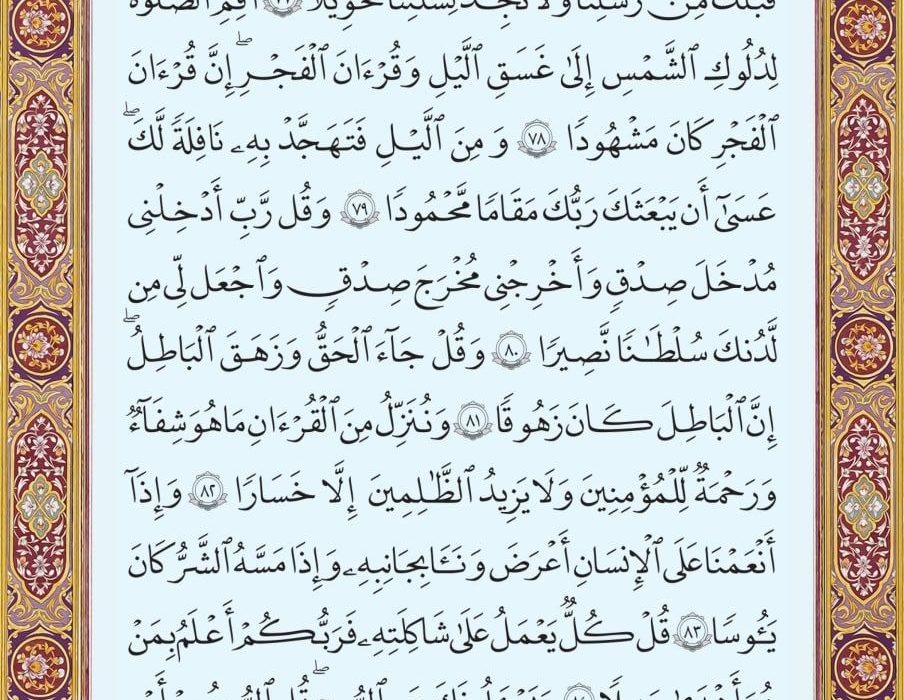 قَبْلَكَ مِن رُّسُلِنَا وَلَا تَجِدُ لِسُنَّتِنَا تَحْوِيلًا ٧٧ أَقِمِ ٱلصَّلَوٰةَ
لِدُلُوكِ ٱلشَّمْسِ إِلَىٰ غَسَقِ ٱلَّيْلِ وَقُرْءَانَ ٱلْفَجْرِ ۖ إِنَّ قُرْءَانَ
ٱلْفَجْرِ كَانَ مَشْهُودًا ٧٨ وَمِنَ ٱلَّيْلِ فَتَهَجَّدْ بِهِۦ نَافِلَةً لَّكَ ۖ
عَسَىٰٓ أَن يَبْعَثَكَ رَبُّكَ مَقَامًا مَّحْمُودًا ٧٩ وَقُل رَّبِّ أَدْخِلْنِى
مُدْخَلَ صِدْقٍ وَأَخْرِجْنِى مُخْرَجَ صِدْقٍ وَٱجْعَل لِّى مِن
لَّدُنكَ سُلْطَٰنًا نَّصِيرًا ٨٠ وَقُلْ جَآءَ ٱلْحَقُّ وَزَهَقَ ٱلْبَاطِلُ ۖ
إِنَّ ٱلْبَاطِلَ كَانَ زَهُوقًا ٨١ وَنُنَزِّلُ مِنَ ٱلْقُرْءَانِ مَا هُوَ شِفَآءٌ
وَرَحْمَةٌ لِّلْمُؤْمِنِينَ وَلَا يَزِيدُ ٱلظَّٰلِمِينَ إِلَّا خَسَارًا ٨٢ وَإِذَآ
أَنْعَمْنَا عَلَى ٱلْإِنسَانِ أَعْرَضَ وَنَـَٔا بِجَانِبِهِۦ وَإِذَا مَسَّهُ ٱلشَّرُّ كَانَ
يَـُٔوسًا ٨٣ قُلْ كُلٌّ يَعْمَلُ عَلَىٰ شَاكِلَتِهِۦ فَرَبُّكُمْ أَعْلَمُ بِمَنْ